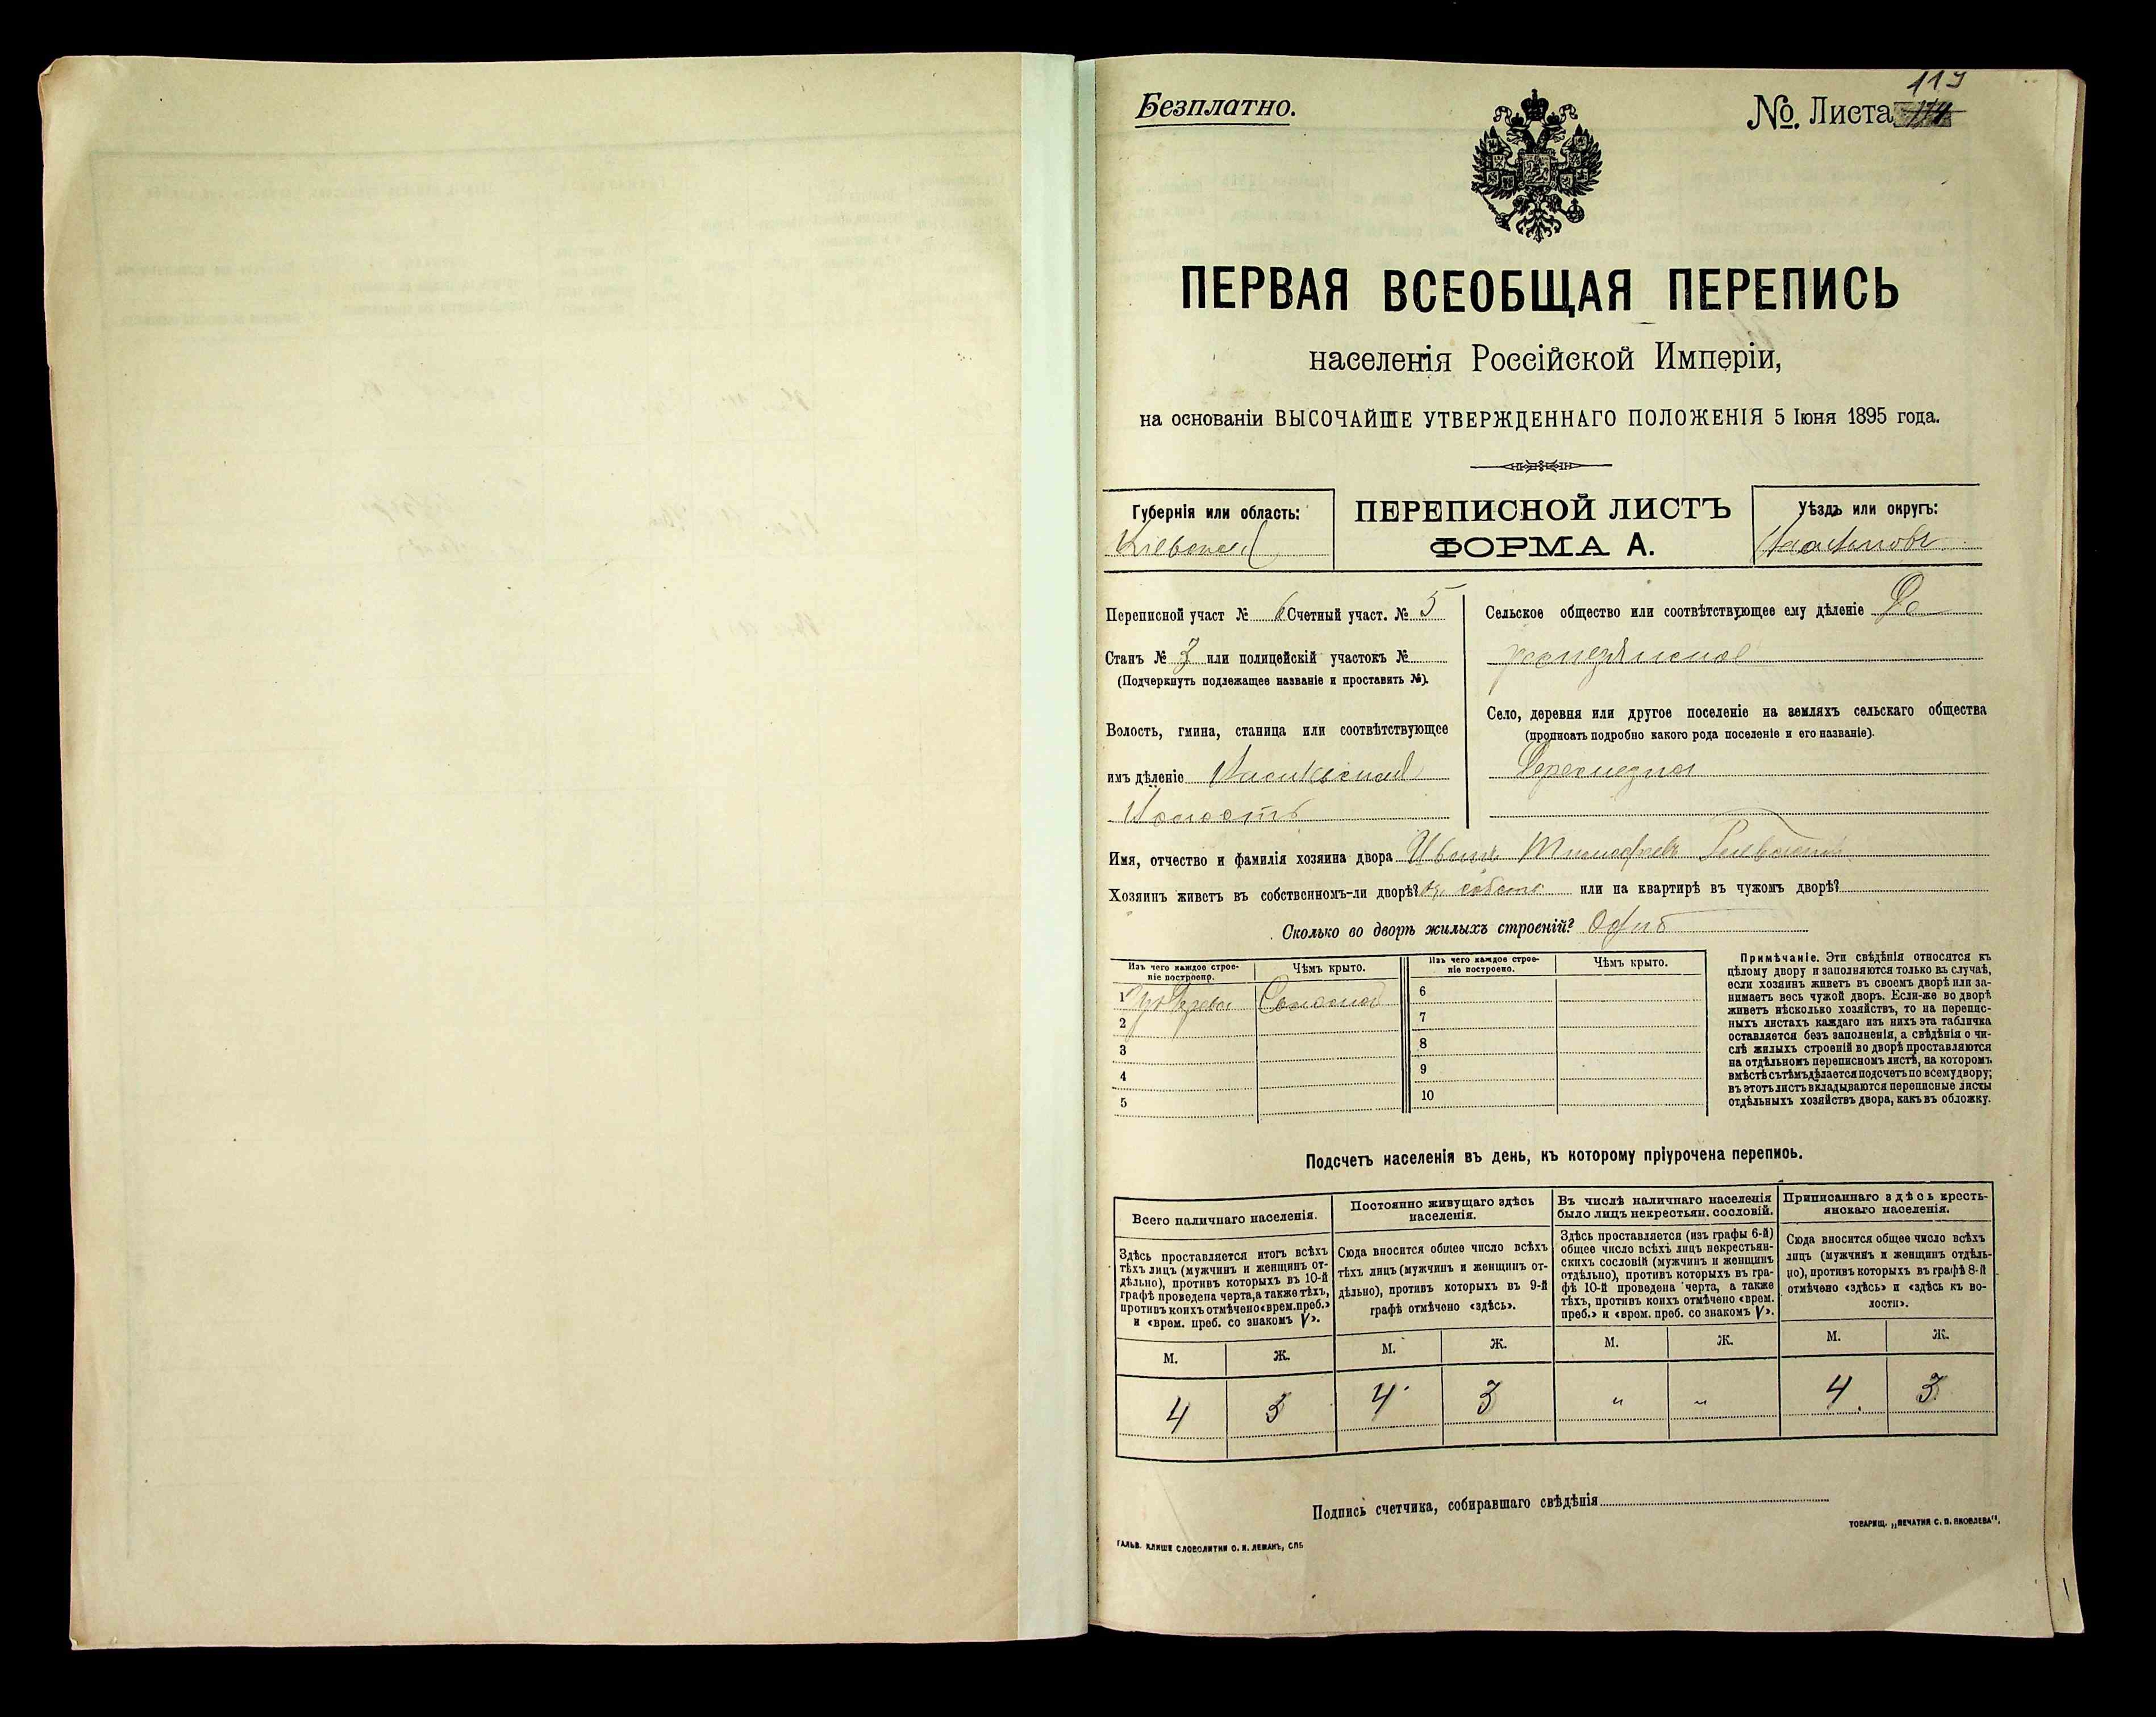 119
Безплатно.
№. Листа
ПЕРВАЯ ВСЕОБЩАЯ ПЕРЕПИСЬ
населенія Россійской Имперіи,
на основаніи ВЫСОЧАЙШЕ УТВЕРЖДЕННАГО ПОЛОЖЕНІЯ 5 Іюня 1895 года.
Губернія или область:
Кіевская
ПЕРЕПИСНОЙ ЛИСТЪ
ФОРМА А.
Уѣздъ или округъ:
Переписной участ № 6 Счетный участ. № 5
Станъ № 3 или полицейскій участокъ №
(Подчеркнуть подлежащее названіе и проставить №).
Волость, гмина, станица или соотвѣтствующее
имъ дѣленіе
Волость
Сельское общество или соотвѣтствующее ему дѣленіе
Село, деревня или другое поселеніе на земляхъ сельскаго общества
(прописать подробно какого рода поселеніе и его названіе).
Имя, отчество и фамилія хозяина двора Иванъ
Хозяинъ живетъ въ собственномъ-ли дворѣ? или на квартирѣ въ чужомъ дворѣ?
Сколько во дворѣ жилыхъ строеній? Одно
Изъ чего каждое строе-
ніе построено.
Чѣмъ крыто.
Изъ чего каждое строе-
ніе построено.
Чѣмъ крыто.
1 Соломой
2
3
4
5
6
7
8
9
10
Примѣчаніе. Эти свѣдѣнія относятся къ
цѣлому двору и заполняются только въ случаѣ,
если хозяинъ живетъ въ своемъ дворѣ или за-
нимаетъ весь чужой дворъ. Если-же во дворѣ
живетъ нѣсколько хозяйствъ, то на перепис-
ныхъ листахъ каждаго изъ нихъ эта табличка
оставляется безъ заполненія, а свѣдѣнія о чи-
слѣ жилыхъ строеній во дворѣ проставляются
на отдѣльномъ переписномъ листѣ, на которомъ
вмѣстѣ съ тѣмъ дѣлается подсчетъ по всему двору;
въ этотъ листъ вкладываются переписные листы
отдѣльныхъ хозяйствъ двора, какъ въ обложку.
Подсчетъ населенія въ день, къ которому пріурочена перепись.
Всего наличнаго населенія.
Здѣсь проставляется итогъ всѣхъ
тѣхъ лицъ (мужчинъ и женщинъ от-
дѣльно), противъ которыхъ въ 10-й
графѣ проведена черта, а также тѣхъ,
противъ коихъ отмѣчено «врем. преб.»
и «врем. преб. со знакомъ V».
Постоянно живущаго здѣсь
населенія.
Сюда вносится общее число всѣхъ
тѣхъ лицъ (мужчинъ и женщинъ от-
дѣльно), противъ которыхъ въ 9-й
графѣ отмѣчено «здѣсь».
Въ числѣ наличнаго населенія
было лицъ некрестьян. сословій.
Здѣсь проставляется (изъ графы 6-й)
общее число всѣхъ лицъ некрестьян-
скихъ сословій (мужчинъ и женщинъ
отдѣльно), противъ которыхъ въ гра-
фѣ 10-й проведена черта, а также
тѣхъ, противъ коихъ отмѣчено «врем.
преб.» и «врем. преб. со знакомъ V».
Приписаннаго здѣсь кресть-
янскаго населенія.
Сюда вносится общее число всѣхъ
лицъ (мужчинъ и женщинъ отдѣль-
но), противъ которыхъ въ графѣ 8-й
отмѣчено «здѣсь» и «здѣсь къ во-
лости».
М. Ж. М. Ж. М. Ж. М. Ж.
4 3 4 3 " " 4 3
Подпись счетчика, собиравшаго свѣдѣнія
ТОВАРИЩ. „ПЕЧАТНЯ С. П. ЯКОВЛЕВА",
ГАЛЬВ. КЛИШЕ СЛОВОЛИТНИ О. И. ЛЕМАНЪ, СПБ